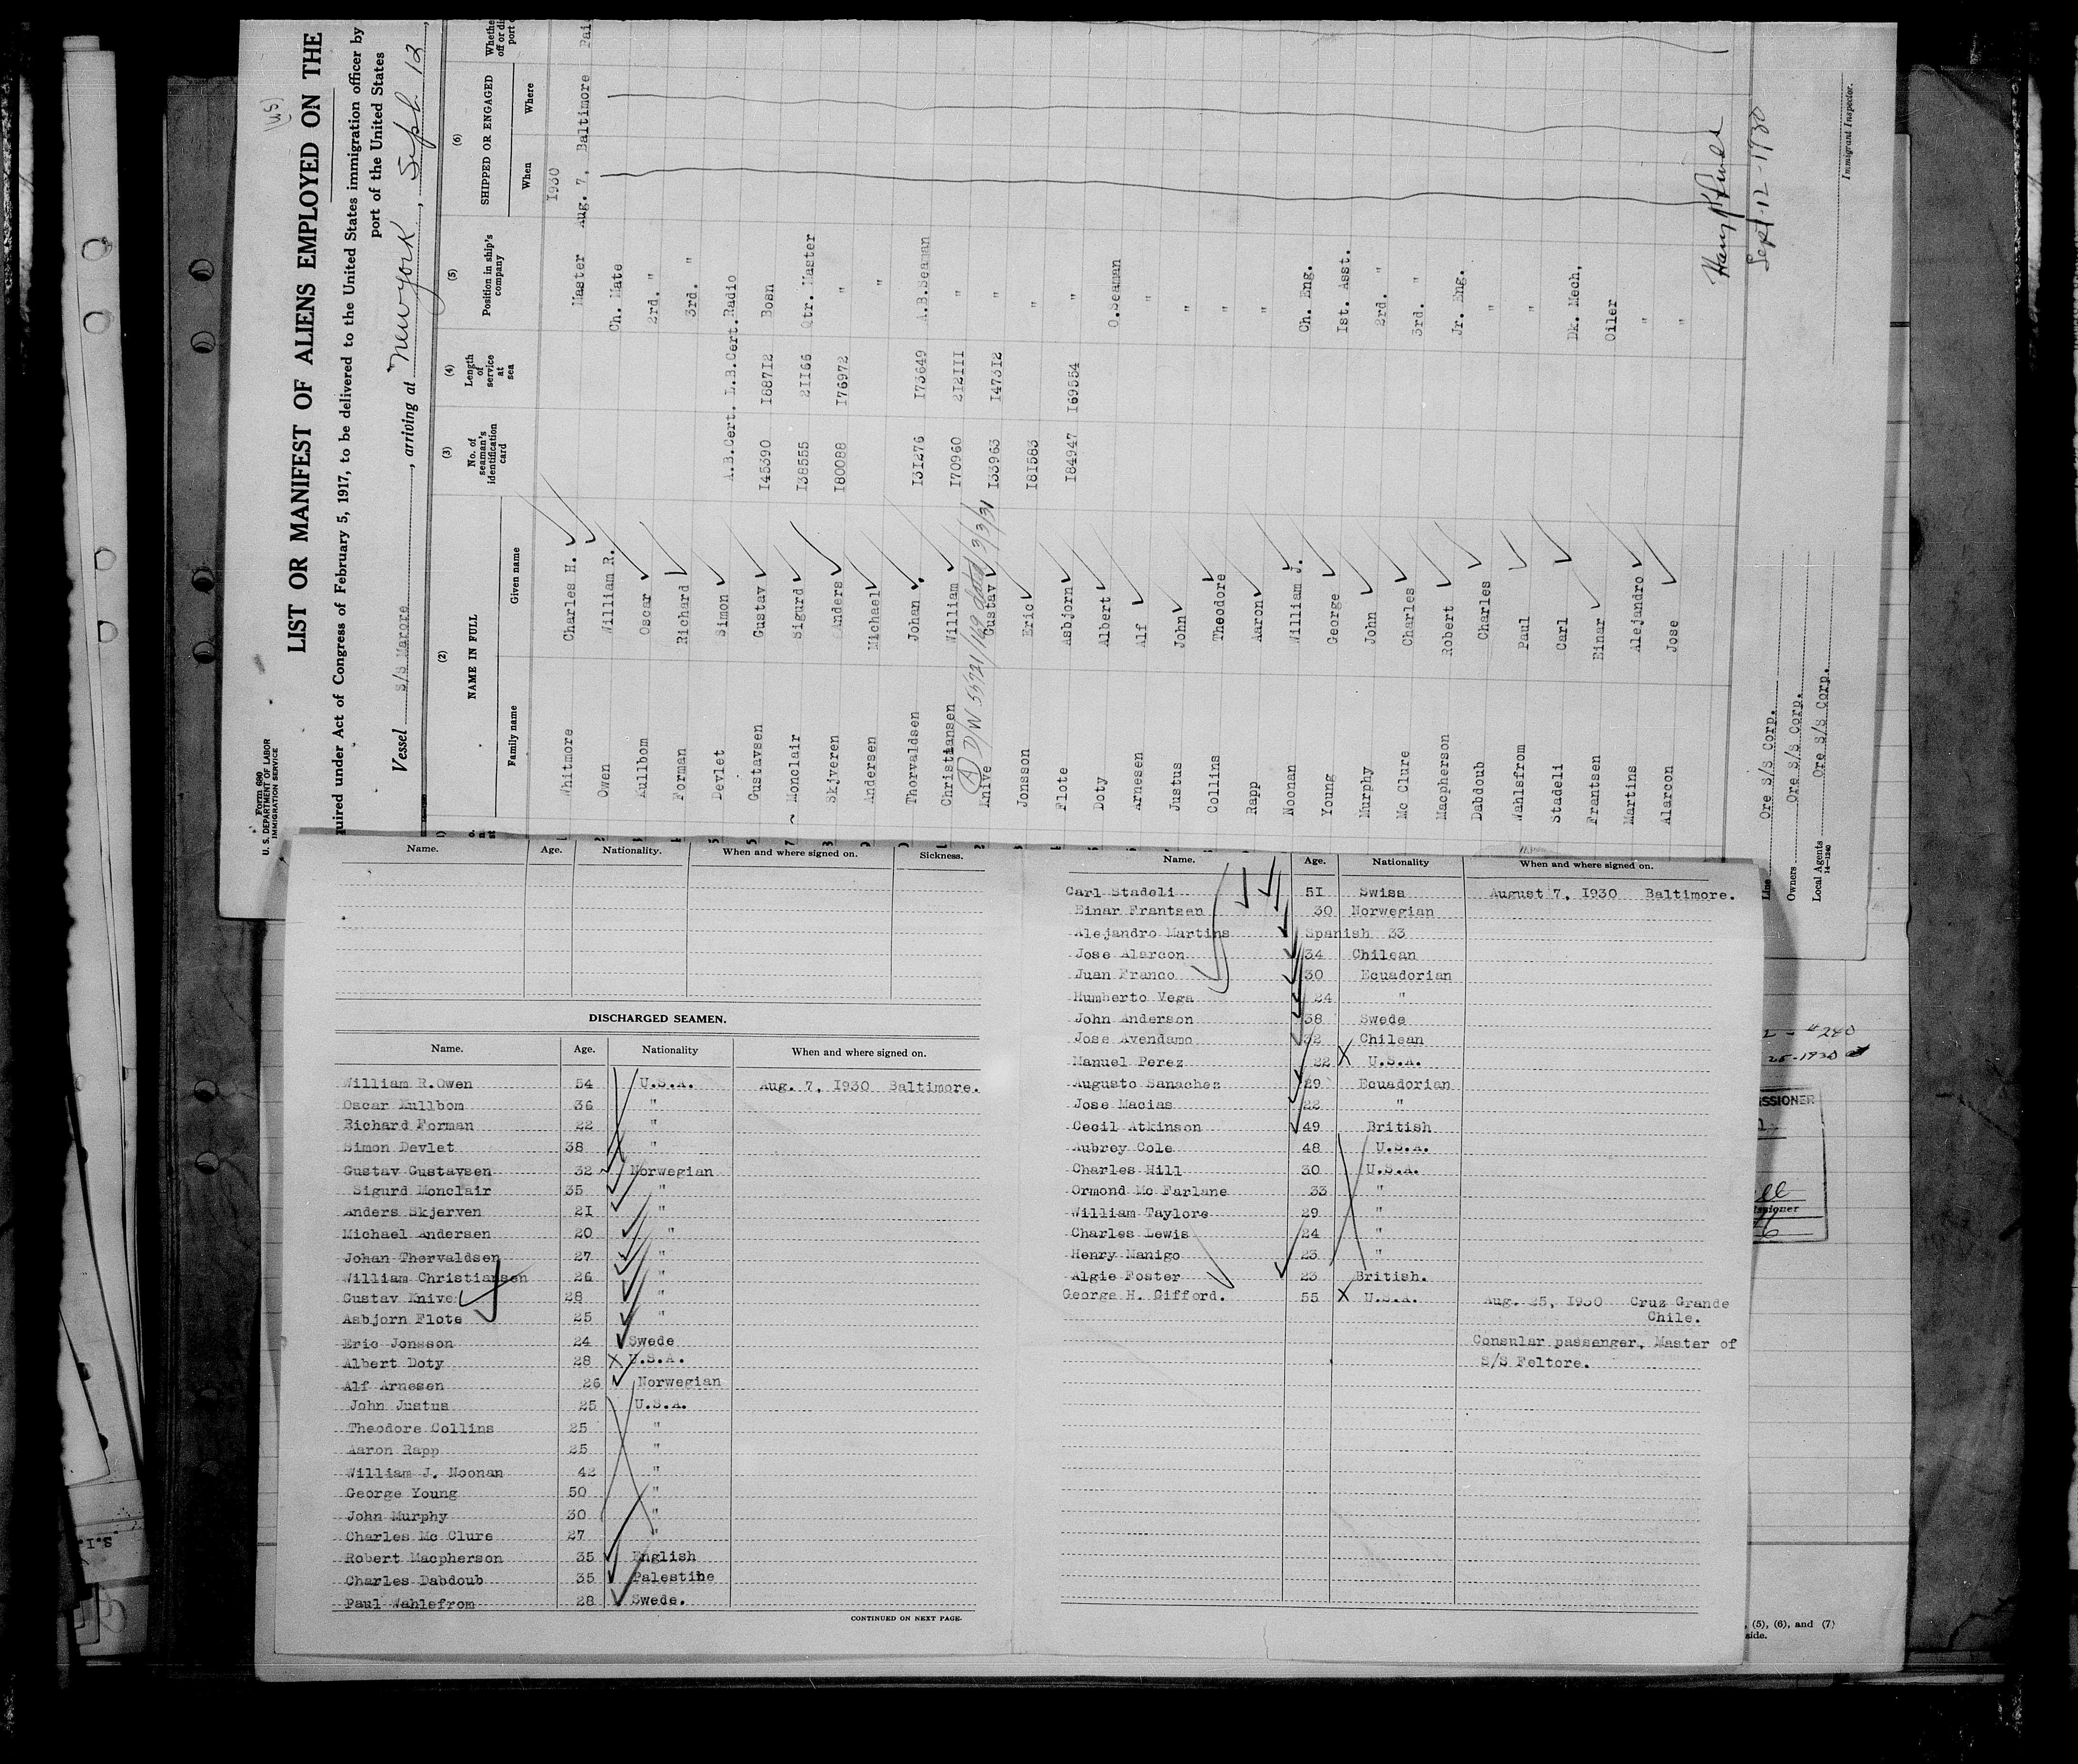 LIST OR MANIFEST OF ALIENS EMPLOYED ON THE
quired under Act of Congress of February 5, 1917, to be delivered to the United States immigration officer by
port of the United States
Form 680
U. S. DEPARTMENT OF LABOR
IMMIGRATION SERVICE
Vessel S/S Marore, arriving at New York, Sept. 12,
(2) (3) (4) (5) (6)
NAME IN FULL
Family name Given name
No. of seaman's identification card
Length of service at sea
Position in ship's company
SHIPPED OR ENGAGED
When Where
1930
Whitmore Charles H. Master Aug. 7, Baltimore
Owen William R. Ch. Mate
Kullbom Oscar 2rd. "
Forman Richard 3rd. "
Devlet Simon A.B.Cert. L.B.Cert. Radio
Gustavsen Gustav I45390 I88712 Bosn
Monclair Sigurd I38555 2II66 Qtr. Master
Skjveren Anders I80088 I76972 "
Andersen Michael "
Thorvaldsen Johan I3I276 I73649 A.B.Seaman
Christiansen William I70960 2I2III "
Knive Gustav I33963 I473I2 "
Jonsson Eric I8I583 "
Flote Asbjorn I84947 I69554 "
Doty Albert O.Seaman
Arnesen Alf "
Justus John "
Collins Theodore "
Rapp Aaron "
Noonan William J. Ch. Eng.
Young George Ist. Asst.
Murphy John 2rd. "
Mc Clure Charles 3rd. "
Macpherson Robert Jr. Eng.
Dabdoub Charles "
Wahlsfrom Paul "
Stadeli Carl Dk. Mech,
Frantsen Einar Oiler
Martins Alejandro "
Alarcon Jose "
Sept-12-1930
Immigrant Inspector.
Line Ore S/S Corp.
Owners Ore S/S Corp.
Local Agents Ore S/S Corp.
14-1240
Name. Age. Nationality. When and where signed on. Sickness.
DISCHARGED SEAMEN.
Name. Age. Nationality When and where signed on.
William R.Owen 54 U.S.A. Aug. 7, I930 Baltimore.
Oscar Kullbom 36 "
Richard Forman 22 "
Simon Devlet 38 "
Gustav Gustavsen 32 Norwegian
Sigurd Monclair 35 "
Anders Skjerven 2I "
Michael Andersen 20 "
Johan Thervaldsen 27 "
William Christiansen 26 "
Gustav Knive 28 "
Asbjorn Flote 25 "
Eric Jonsson 24 Swede
Albert Doty 28 U.S.A.
Alf Arnesen 26 Norwegian
John Justus 25 U.S.A.
Theodore Collins 25 "
Aaron Rapp 25 "
William J. Noonan 42 "
George Young 50 "
John Murphy 30 "
Charles Mc Clure 27 "
Robert Macpherson 35 English
Charles Dabdoub 35 Palestine
Paul Wahlsfrom 28 Swede.
CONTINUED ON NEXT PAGE.
Name. Age. Nationality When and where signed on.
Carl Stadeli 5I Swiss August 7, I930 Baltimore.
Einar Frantsen 30 Norwegian
Alejandro Martins Spanish 33
Jose Alarcon 34 Chilean
Juan Franco 30 Ecuadorian
Humberto Vega 24 "
John Anderson 38 Swede
Jose Avendamo 32 Chilean
Manuel Perez 22 U.S.A.
Augusto Sanachez 29 Ecuadorian
Jose Macias 22 "
Cecil Atkinson 49 British
Aubrey Cole 48 U.S.A.
Charles Hill 30 U.S.A.
Ormond Mc Farlane 33 "
William Taylore 29 "
Charles Lewis 24 "
Henry Manigo 23 "
Algie Foster 23 British.
George H. Gifford. 55 U.S.A. Aug. 25, I930 Cruz Grande
Chile.
Consular passenger, Master of
S/S Feltore.
, (5), (6), and (7)
side.